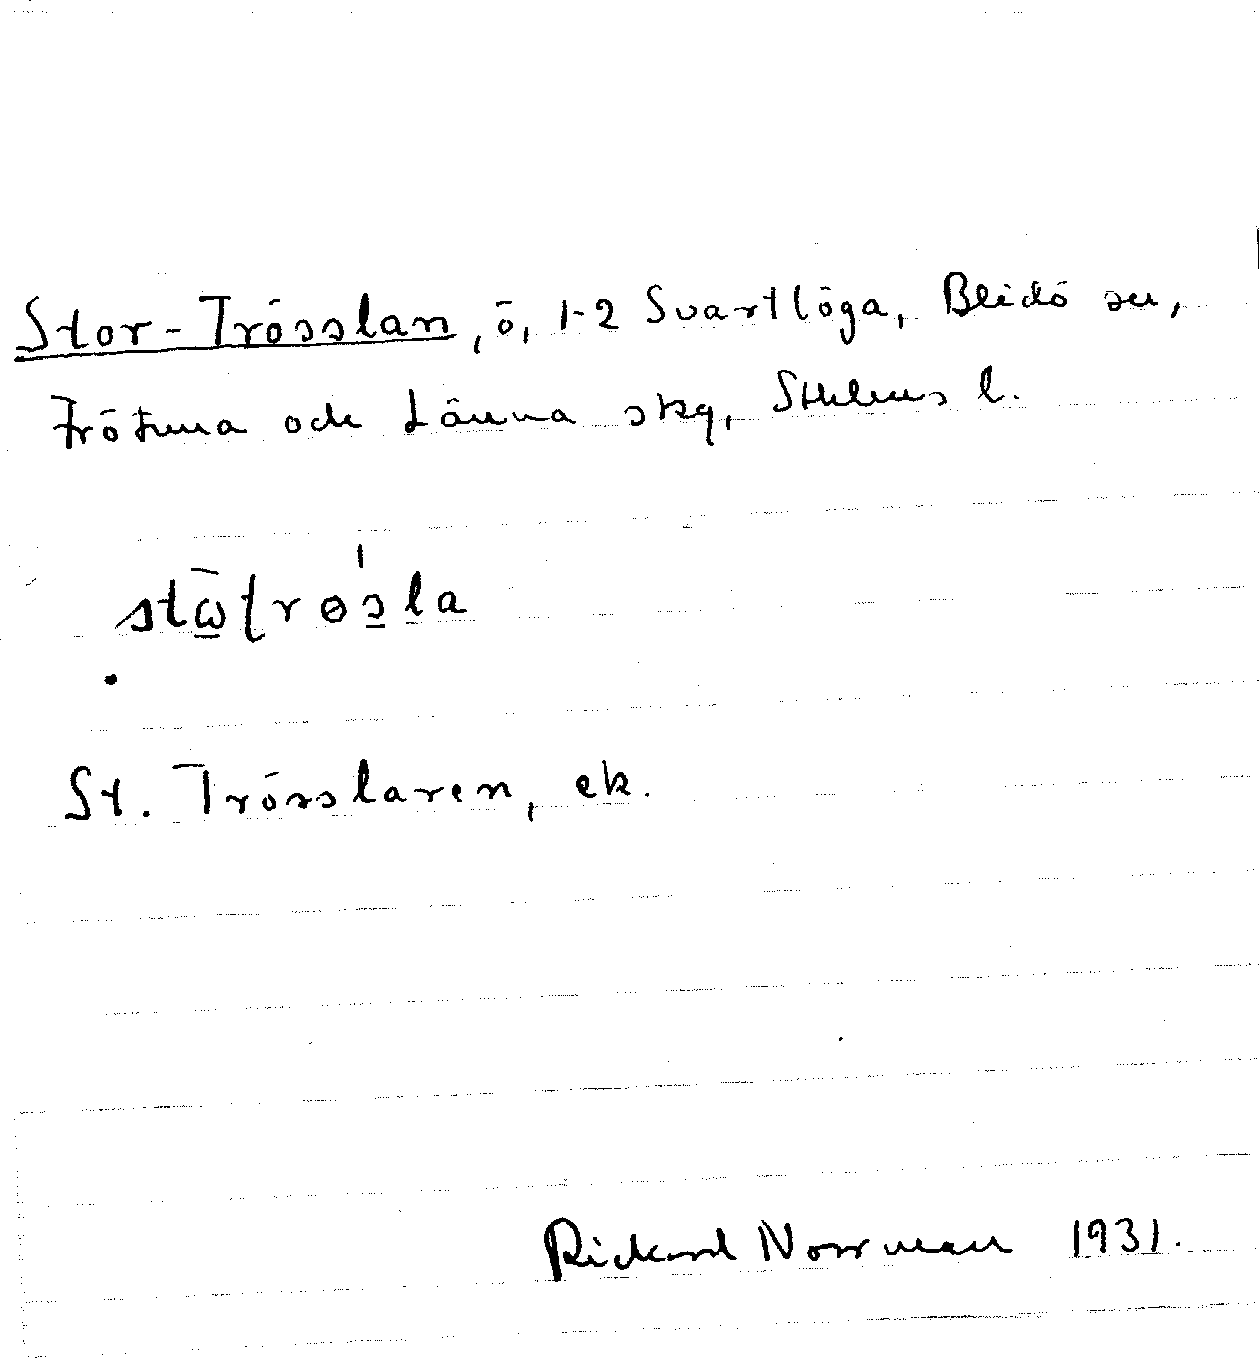 Stor-Trösslan, ö, 1-2 Svartlöga, Blidö sn,
Frötuna och Länna skg, Sthlms l.
stω̠̄trɵs̠la
St. Trösslaren, ek.
Rickard Norrman 1931.